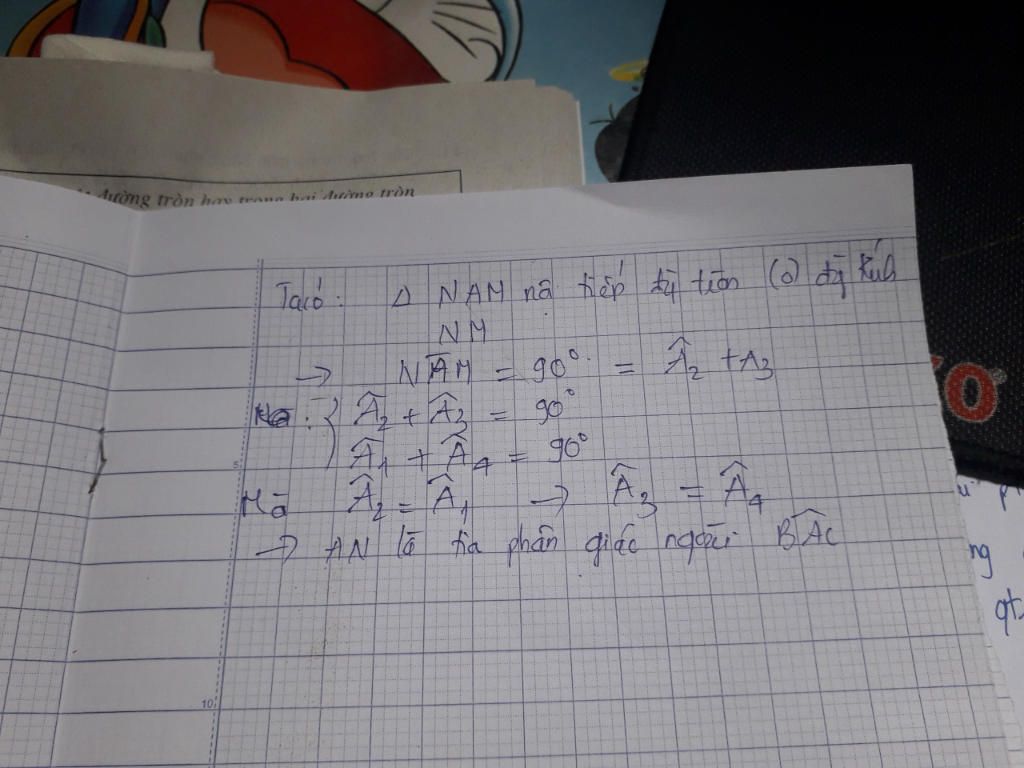 đường tròn hay trong hai đường tròn
Ta có: Δ NAM nội tiếp đg tròn (O) đg kính
NM
→ NAM̂ = 90° = Â₂ + A₃
Â₂ + Â₃ = 90°
Â₁ + Â₄ = 90°
Mà Â₂ = Â₁ → Â₃ = Â₄
→ AN là tia phân giác ngoài BÂC
5
10